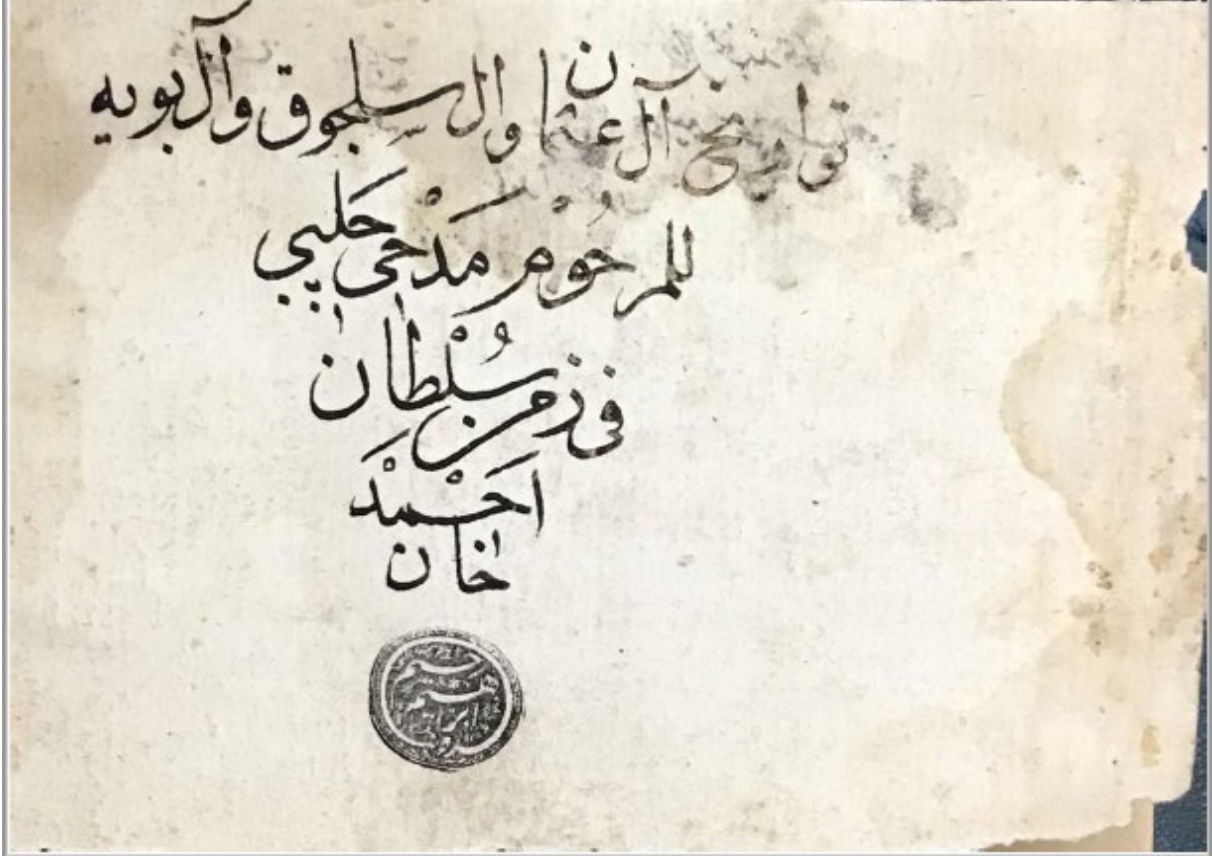 تواريخ آل عثمان وال سلجوق وآل بويه
للمرحُوْمْ مَدْحى چَلَبي
فى زمن سُلْطان
احَمْدَ
خان